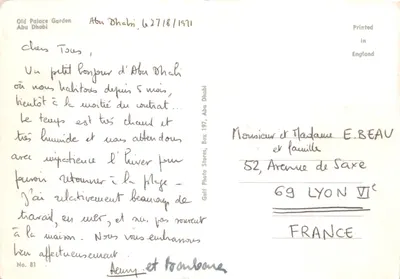 Old Palace Garden
Abu Dhabi
Abu Dhabi, le 27/8/1971
Printed
in
England
Chers Tous,
Un petit bonjour d'Abu Dhabi
où nous habitons depuis 5 mois,
bientôt à la moitié du contrat...
Le temps est très chaud et
très humide et nous attendons
avec impatience l'hiver pour
pouvoir retourner à la plage -
J'ai relativement beaucoup de
travail, en effet, et suis pas souvent
à la maison. Nous vous embrassons
bien affectueusement
Henry et
No. 81
Gulf Photo Stores, Box 197, Abu Dhabi
Monsieur et Madame E. BEAU
et famille
52, Avenue de Saxe
69 LYON VIe
FRANCE